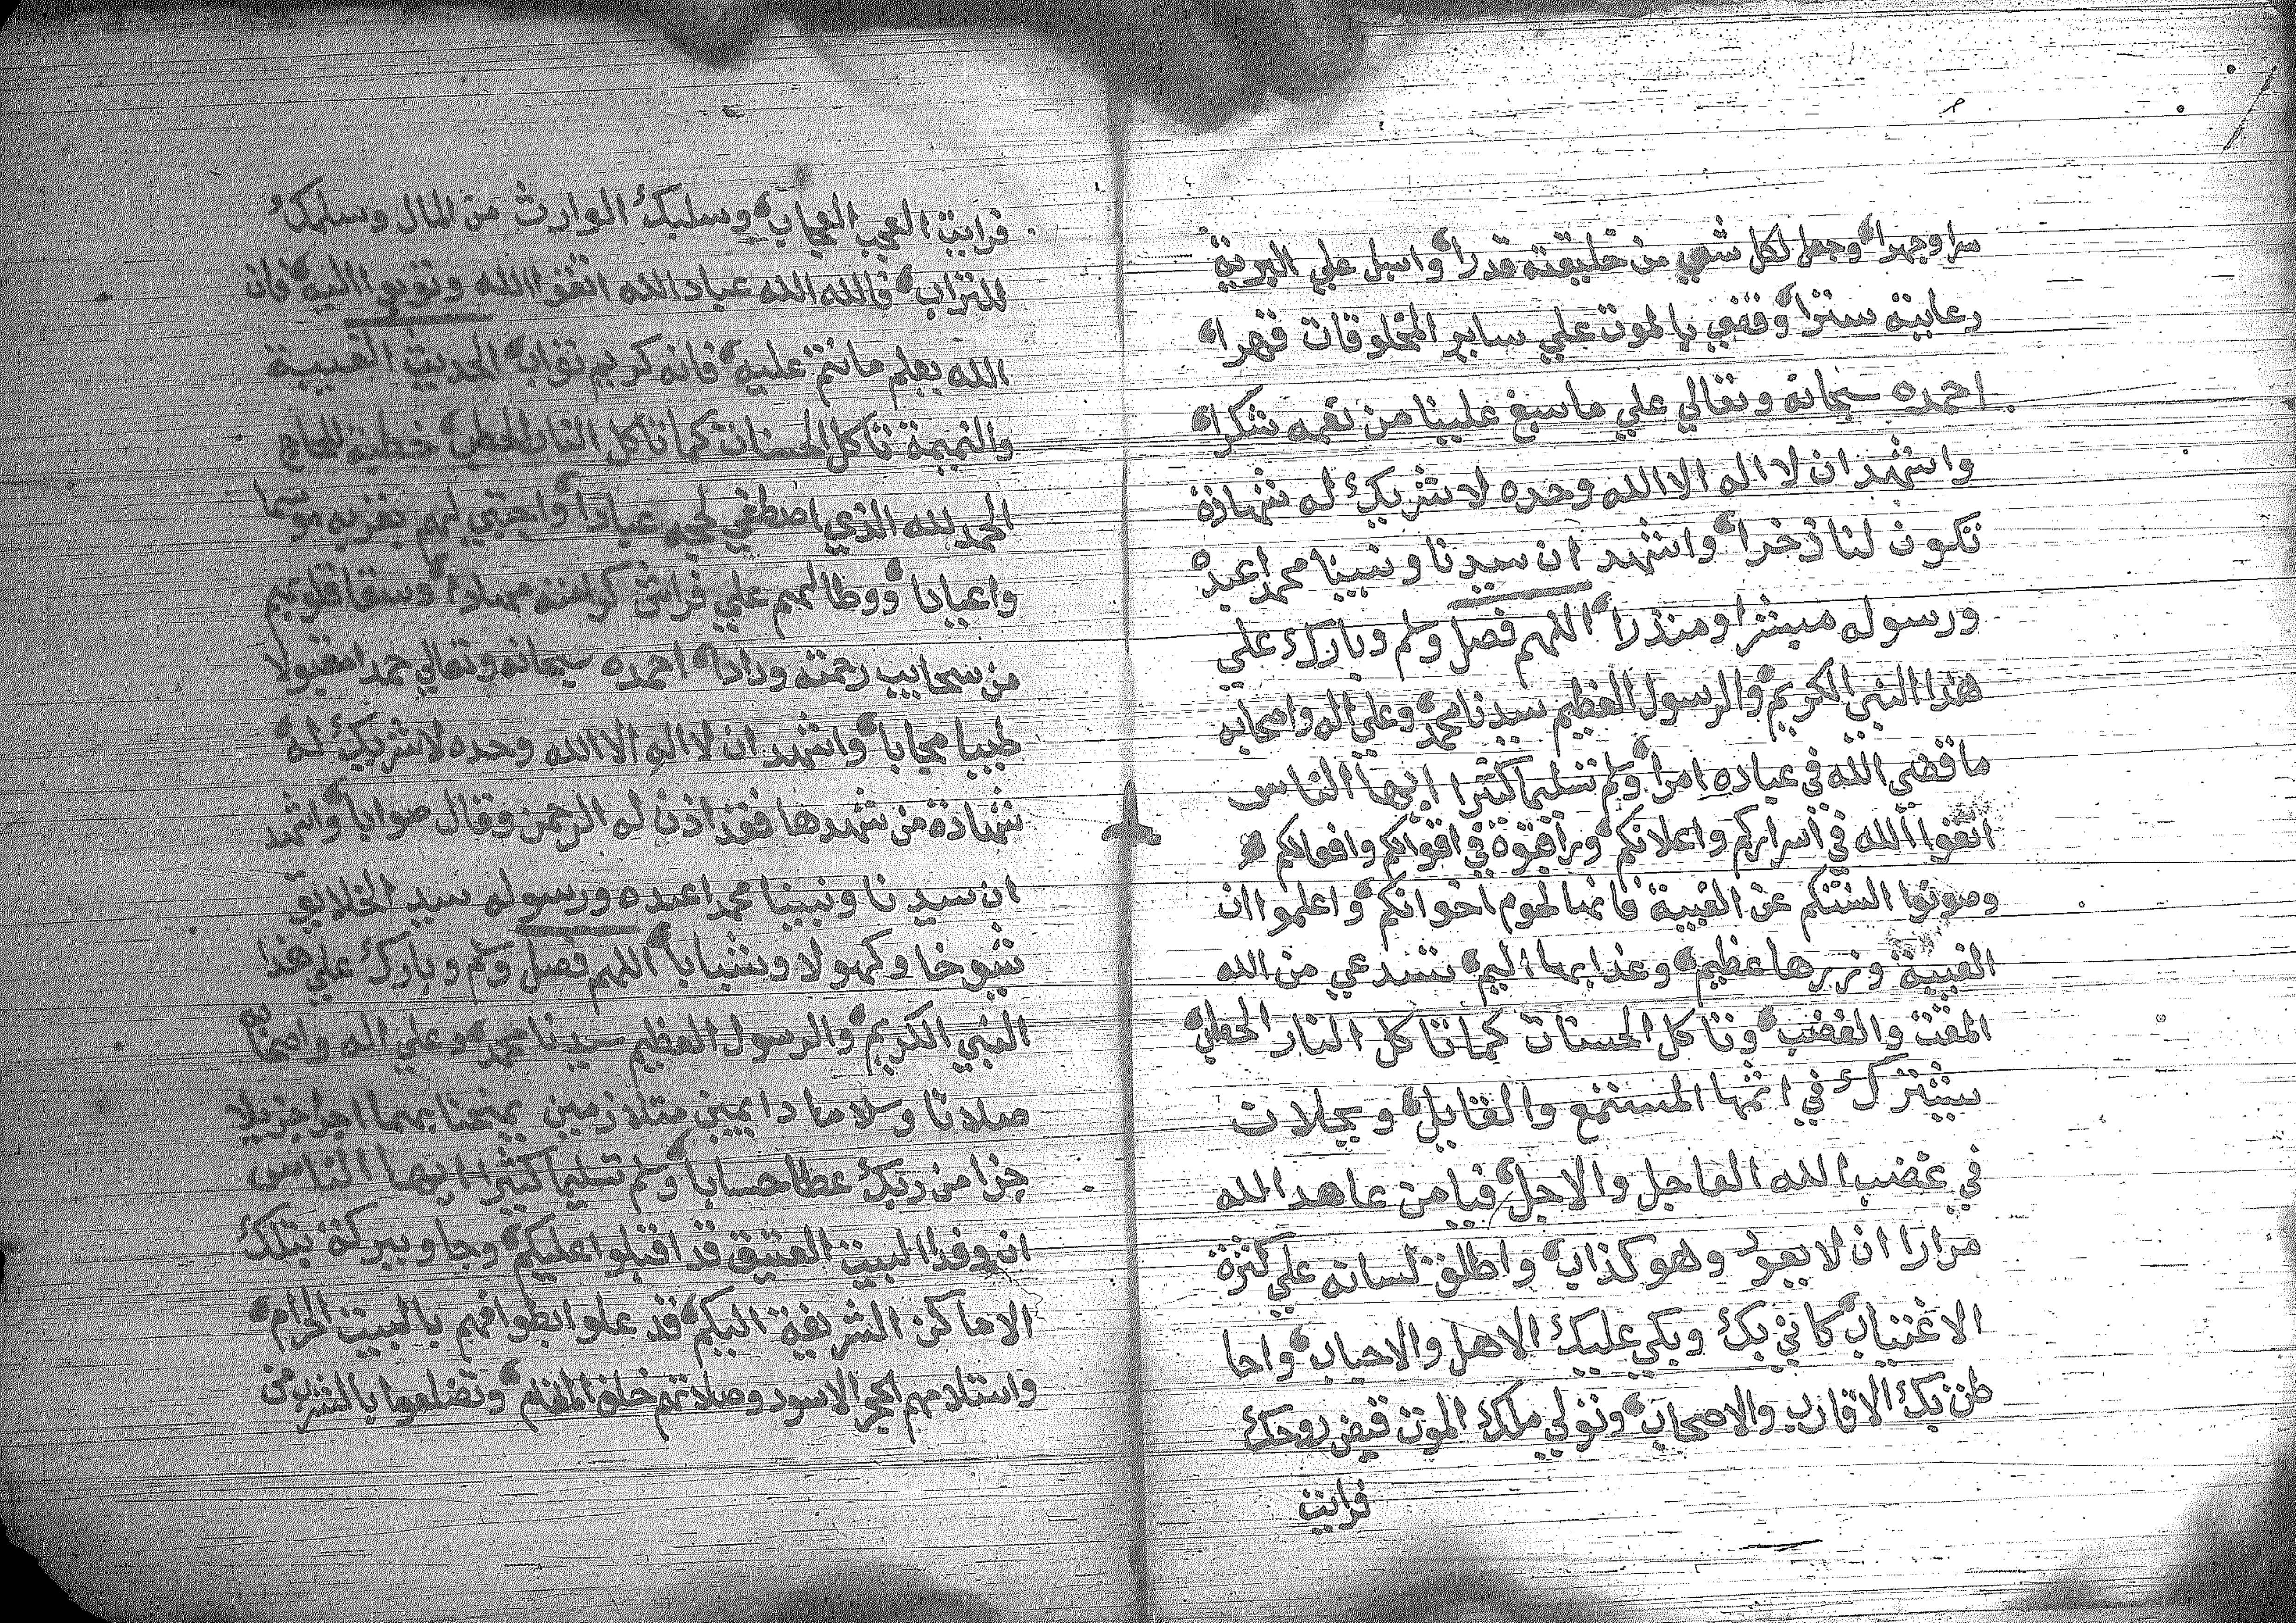 سرا وجهرا وجعل لكل شي من خليقته قدرا واسبل علي البرية
رعاية سترا وقضي بالموت علي ساير المخلوقات قهرا
احمده سبحانه وتعالي علي ما سبغ علينا من نعمه شكرا
واشهد ان لا اله الا الله وحده لا شريك له شهادة
تكون لنا ذخرا واشهد ان سيدنا ونبينا محمدا عبده
ورسوله مبشرا ومنذرا اللهم فصل وسلم وبارك علي
هذا النبي الكريم والرسول العظيم سيدنا محمد وعلي اله واصحابه
ما قضي الله في عباده امرا وسلم تسليما كثيرا ايها الناس
اتقوا الله في اسراركم واعلانكم وراقبوه في اقوالكم وافعالكم
وصونوا السنتكم عن الغيبة فانها لحوم اخوانكم واعلموا ان
الغيبة وزرها عظيم وعذابها اليم تستدعي من الله
المقت والغضب وتاكل الحسنات كما تاكل النار الحطب
يشترك في اثمها المستمع والقايل ويجلات
في غضب الله العاجل والاجل فيا من عاهد الله
مرارا ان لا يعود وهو كذاب واطلق لسانه علي كثرة
الاغتياب كاني بك وبكي عليك الاهل والاحباب واحا
طن بك الاقارب والاصحاب وتولي ملك الموت قبض روحك
فرايت
فرايت العجب العجاب وسلبك الوارث من المال وسلمك
للتراب فالله الله عباد الله اتقوا الله وتوبوا اليه فان
الله يعلم ما انتم عليه فانه كريم تواب الحديث الغيبة
والنميمة تاكل الحسنات كما تاكل النار الحطب خطبة للحاج
الحمد لله الذي اصطفي لحجه عبادا واجتبي لهم بقربه موسما
واعيادا ووطا لهم علي فراش كرامته مهادا وسقا قلوبهم
من سحايب رحمته ودادا احمده سبحانه وتعالي حمدا مقبولا
طيبا مجابا واشهد ان لا اله الا الله وحده لا شريك له
شهادة من شهدها فقد اذن له الرحمن وقال صوابا واشهد
ان سيدنا ونبينا محمدا عبده ورسوله سيد الخلايق
شيوخا وكهولا وشبابا اللهم فصل وسلم وبارك علي هذا
النبي الكريم والرسول العظيم سيدنا محمد وعلي اله واصحابه
صلاتا وسلاما دايمين متلازمين يمنحنا بهما اجرا جزيلا
جزا من ربك عطا حسابا وسلم تسليما كثيرا ايها الناس
ان وفد البيت العتيق قد اقبلوا عليكم وجاو ببركة بتلك
الاماكن الشريفة اليكم قد علوا بطوافهم بالبيت الحرام
واستلامهم الحجر الاسود وصلاتهم خلف المقام وتضلعوا بالشرب من